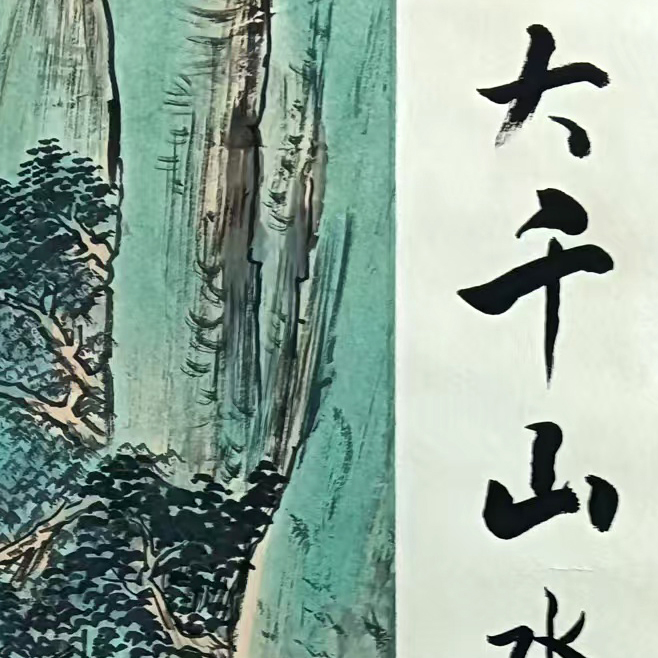 大千山水